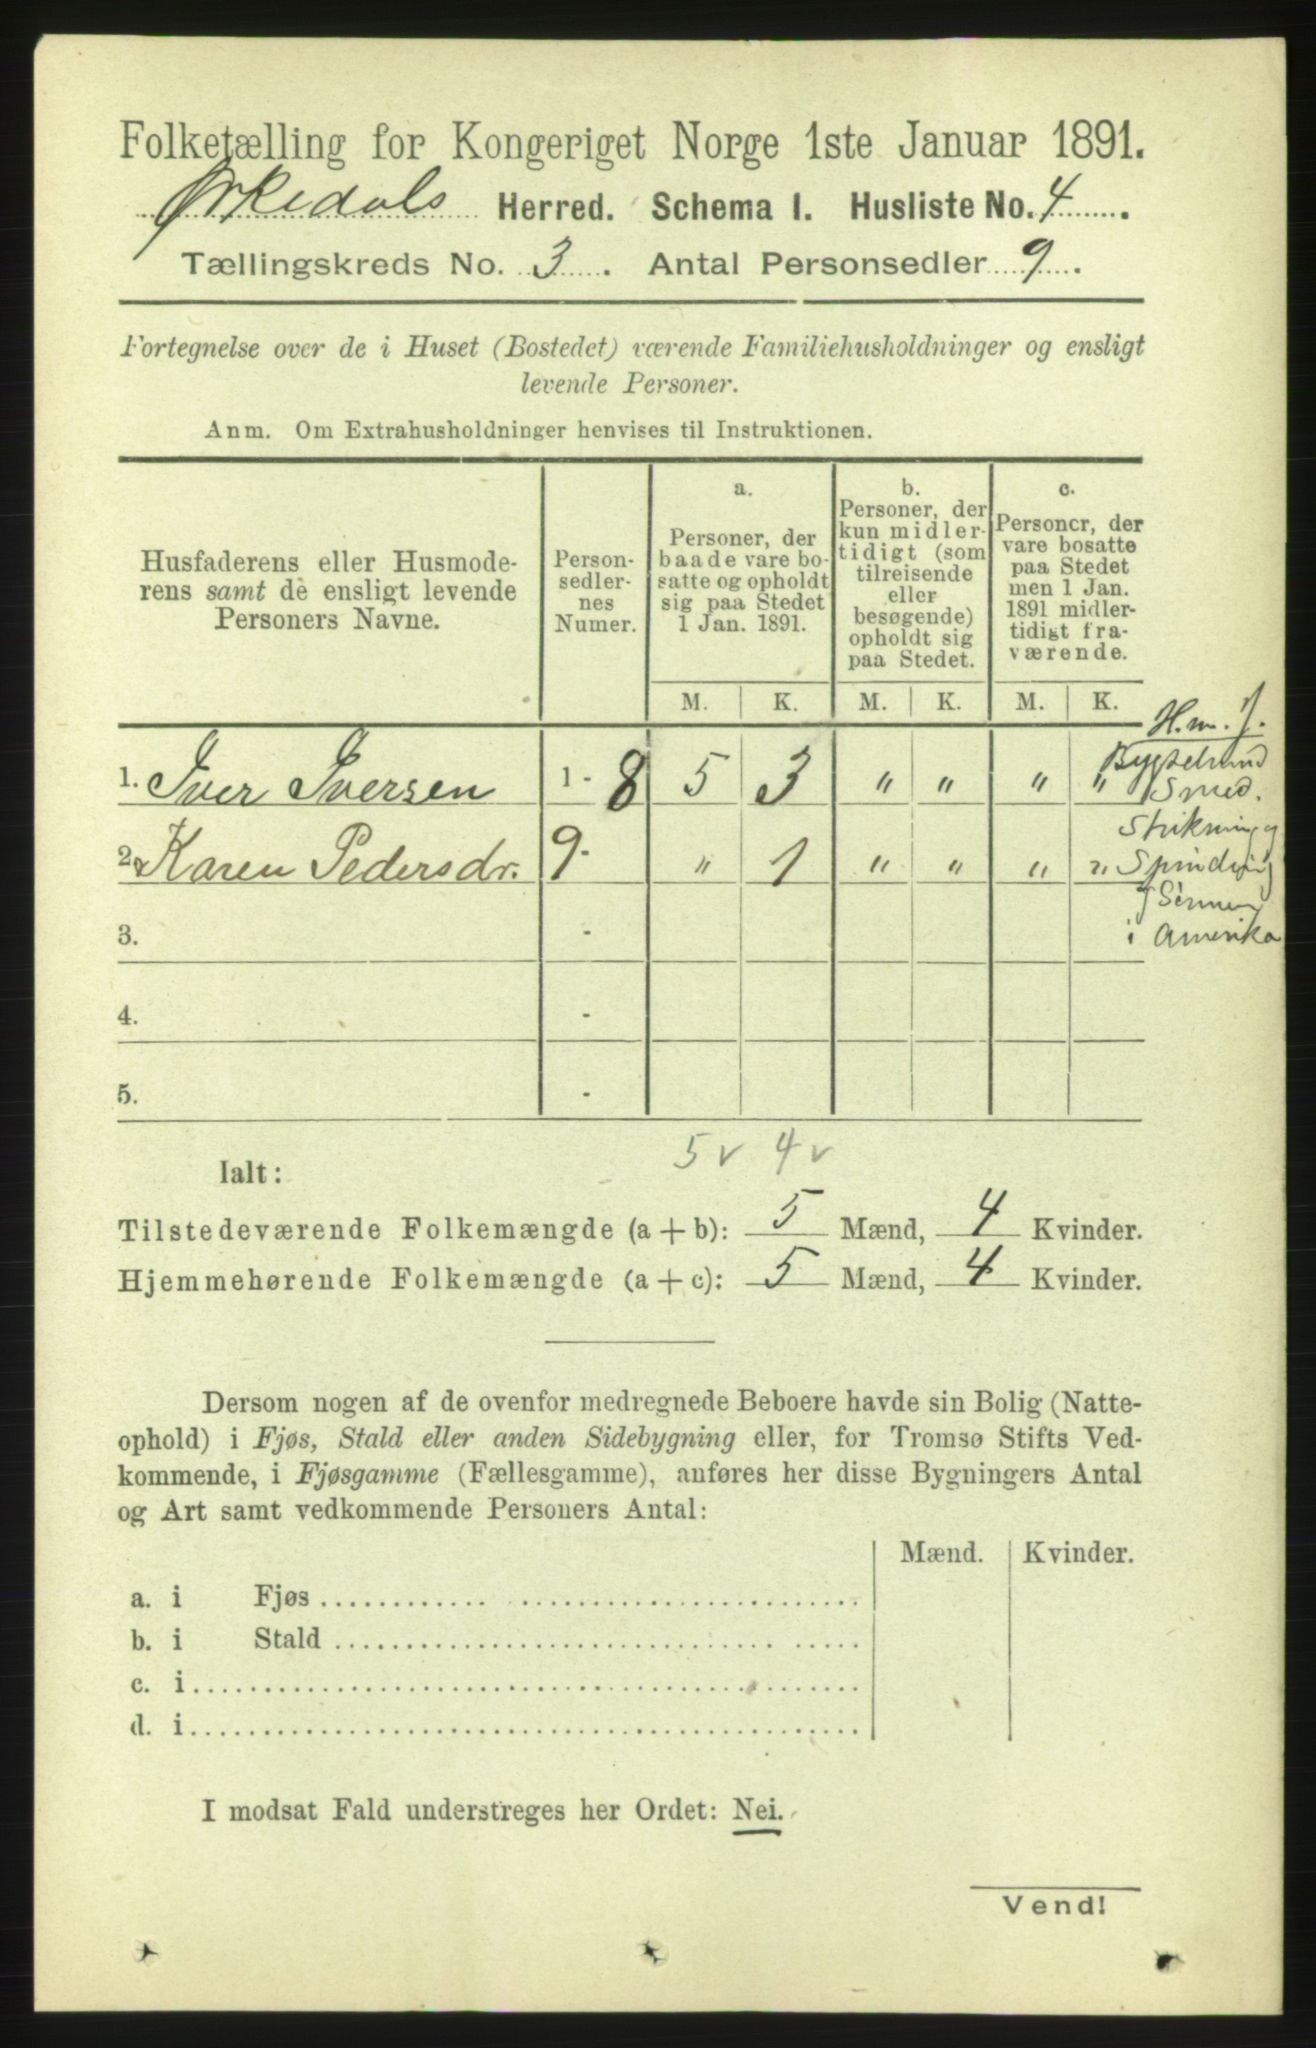 Folketælling for Kongeriget Norge 1ste Januar 1891.
Ørkedals Herred. Schema I. Husliste No. 4.
Tællingskreds No. 3. Antal Personsedler 9.
Fortegnelse over de i Huset (Bostedet) værende Familiehusholdninger og ensligt
levende Personer.
Anm. Om Extrahusholdninger henvises til Instruktionen.
Husfaderens eller Husmode-
rens samt de ensligt levende
Personers Navne.
Person-
sedler-
nes
Numer.
a.
Personer, der
baade vare bo-
satte og opholdt
sig paa Stedet
1 Jan. 1891.
b.
Personer, der
kun midler-
tidigt (som
tilreisende
eller
besøgende)
opholdt sig
paa Stedet.
c.
Personer, der
vare bosatte
paa Stedet
men 1 Jan.
1891 midler-
tidigt fra-
værende.
M. K. M. K. M. K.
H.m.
1. Iver Iversen 1 - 8 5 3 " " " "
Smed.
2. Karen Pedersdr. 9 - " 1 " " " "
i Amerika
3. -
4. -
5. -
5 v 4 v
Ialt:
Tilstedeværende Folkemængde (a + b): 5 Mænd, 4 Kvinder.
Hjemmehørende Folkemængde (a + c): 5 Mænd, 4 Kvinder.
Dersom nogen af de ovenfor medregnede Beboere havde sin Bolig (Natte-
ophold) i Fjøs, Stald eller anden Sidebygning eller, for Tromsø Stifts Ved-
kommende, i Fjøsgamme (Fællesgamme), anføres her disse Bygningers Antal
og Art samt vedkommende Personers Antal:
Mænd. Kvinder.
a. i Fjøs
b. i Stald
c. i
d. i
I modsat Fald understreges her Ordet: Nei.
Vend!